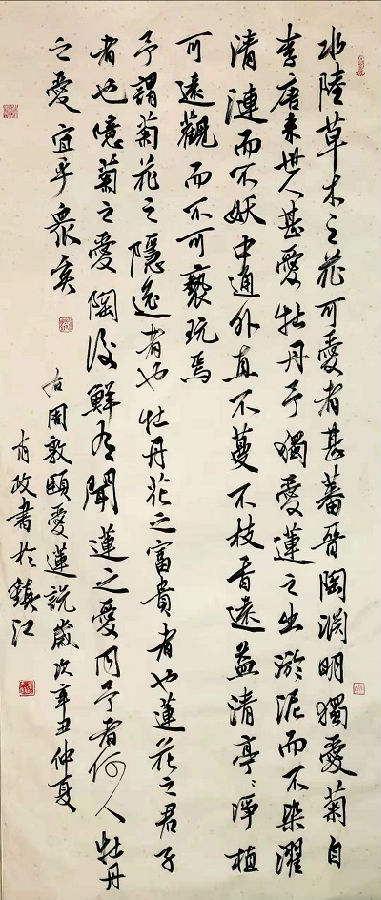 水陸草木之花可愛者甚蕃晉陶淵明獨愛菊自
李唐來世人甚愛牡丹予獨愛蓮之出淤泥而不染濯
清漣而不妖中通外直不蔓不枝香遠益清亭亭淨植
可遠觀而不可褻玩焉
予謂菊花之隱逸者也牡丹花之富貴者也蓮花之君子
者也噫菊之愛陶後鮮有聞蓮之愛同予者何人牡丹
之愛宜乎衆矣
右周敦頤愛蓮説歲次辛丑仲夏
政書於鎮江